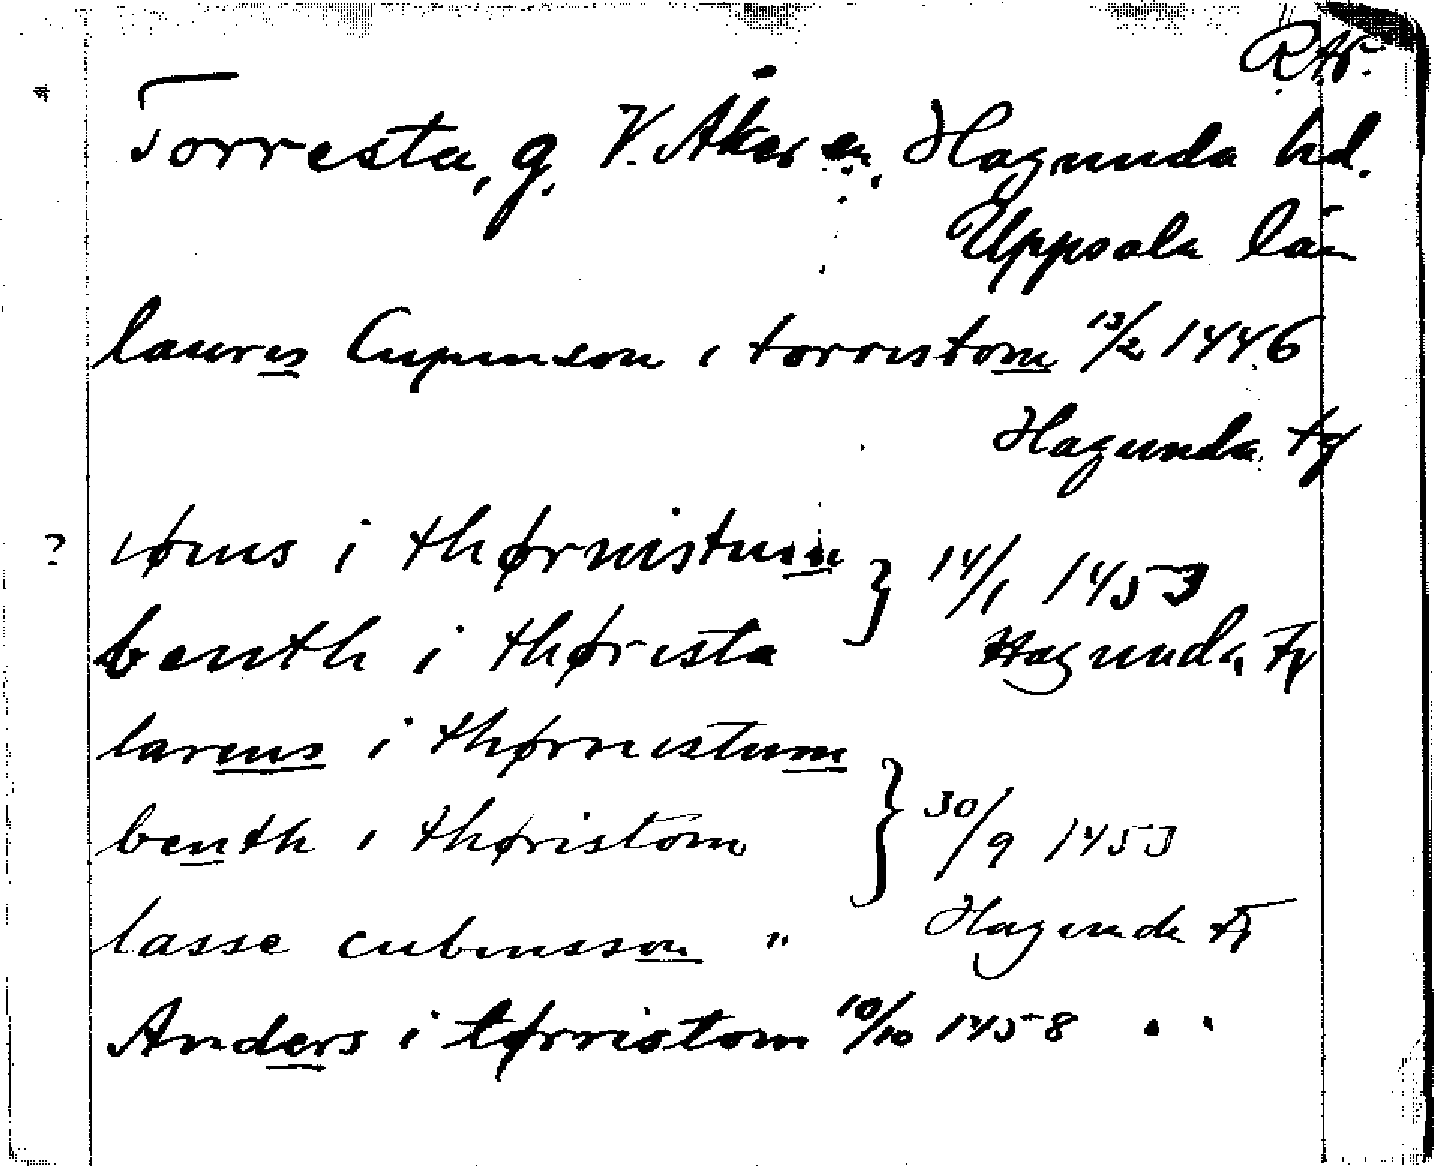 R.A.
Torresta, g. V. Åker sn, Hagunda hd.
Uppsala län
lauris Cupunson i torristom 13/2 1446
Hagunda tg
? iønus i thørnistum 14/1 1453
benth i thørista Hagunda tg
larens i thørnistum
benth i thøristom 30/9 1453
lasse cubensson " Hagunda tg
Anders i tørristom 10/10 1458 " "